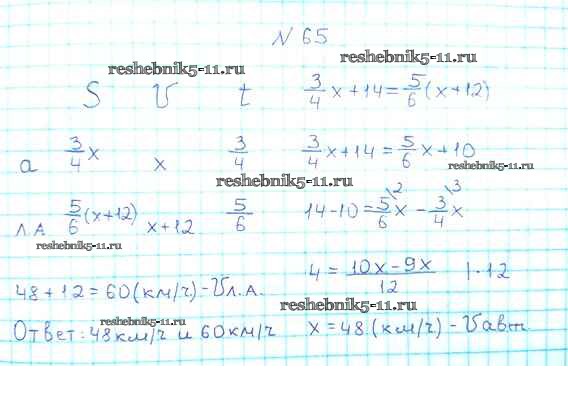 N 65
reshebnik5-11.ru
reshebnik5-11.ru
S V t
3/4 x + 14 = 5/6 (x + 12)
а 3/4 x x 3/4
3/4 x + 14 = 5/6 x + 10
reshebnik5-11.ru
reshebnik5-11.ru
л.А 5/6 (x + 12) x + 12 5/6
14 - 10 = 5/6 \2 x - 3/4 \3 x
reshebnik5-11.ru
4 = 10x - 9x / 12 | · 12
48 + 12 = 60 (км/ч) - V л.А.
reshebnik5-11.ru
reshebnik5-11.ru
Ответ: 48 км/ч и 60 км/ч
x = 48 (км/ч) - V авт.